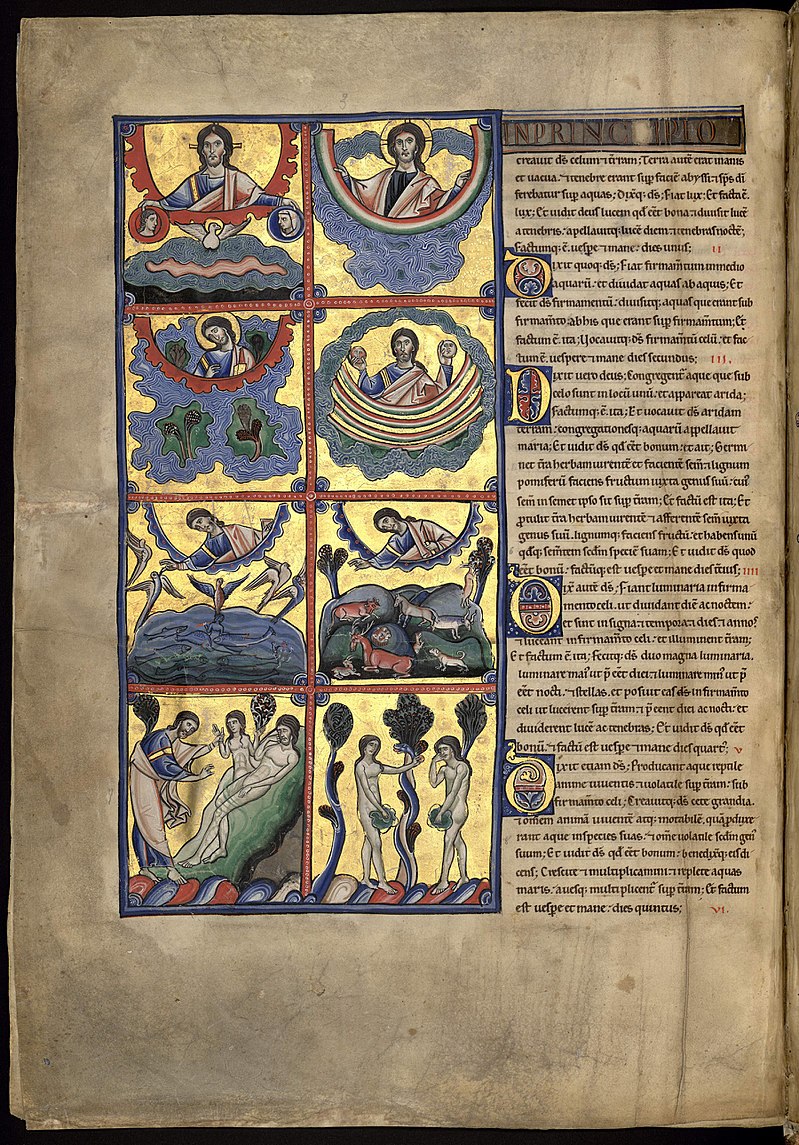 INPRINCIPIO
creavit ds celum & tram; Terra aute erat inanis
et vacua. & tenebre erant sup facie abyssi: & sps di
ferebatur sup aquas; Dixq; ds; Fiat lux; Et facta e
lux; Et vidit deus lucem qd eet bona: & divisit luce
a tenebris. appellavitq; luce diem & tenebras nocte;
Factumq; e vespe & mane. dies unus; II
Dixit quoq; ds; Fiat firmamtum in medio
aquaru. & dividat aquas ab aquis; Et
fecit ds firmamentu. divisitq; aquas que erant sub
firmamto. ab his que erant sup firmamtum; Et
factum e. ita; Vocavitq; ds firmamtu celu. et fac
tum e. vespere & mane dies secundus; III.
Dixit vero deus; Congregent aque que sub
celo sunt in locu unu. et appareat arida;
Factumq; e. ita; Et vocavit ds aridam
terram. congregationesq; aquaru appellavit
maria; Et vidit ds qd eet bonum. et ait; Germi
net tra herbam virente et faciente sem; & lignum
pomiferu faciens fructum iuxta genus suu. cui
sem in semet ipso sit sup tram; Et factu est ita; Et
protulit tra herbam virente & afferente sem iuxta
genus suu. lignumq; faciens fructu. et habens unu
qdq; semtem scdm specie suam; Et vidit ds quod
eet bonu. factuq; est vespe & mane dies tcius; IIII
Dix aute ds; Fiant luminaria in firma
mento celi. ut dividant die ac nocte.
et sint in signa & tempora & dies & annos
& luceant in firmamto celi. et illuminent tram;
Et factum e. ita; Fecitq; ds duo magna luminaria.
luminare mai ut p eet diei. & luminare min ut p
eet nocti. & stellas. et posuit eas ds in firmamto
celi ut lucerent sup tram. & p eent diei ac nocti. et
dividerent luce ac tenebras; Et vidit ds qd eet
bonu. & factu est vespe & mane dies quart; V
Dixit etiam ds; Producant aque reptile
anime viventis & volatile sup tram. sub
firmamto celi; Creavitq; ds cete grandia.
& omem anima vivente atq; motabile. qua pduxe
rant aque in species suas. & ome volatile scdm gen
suum; Et vidit ds qd eet bonum. benedixq; eis di
cens; Crescite & multiplicamini. & replete aquas
maris. avesq; multiplicent sup tram; Et factum
est vespe et mane. dies quintus; VI.